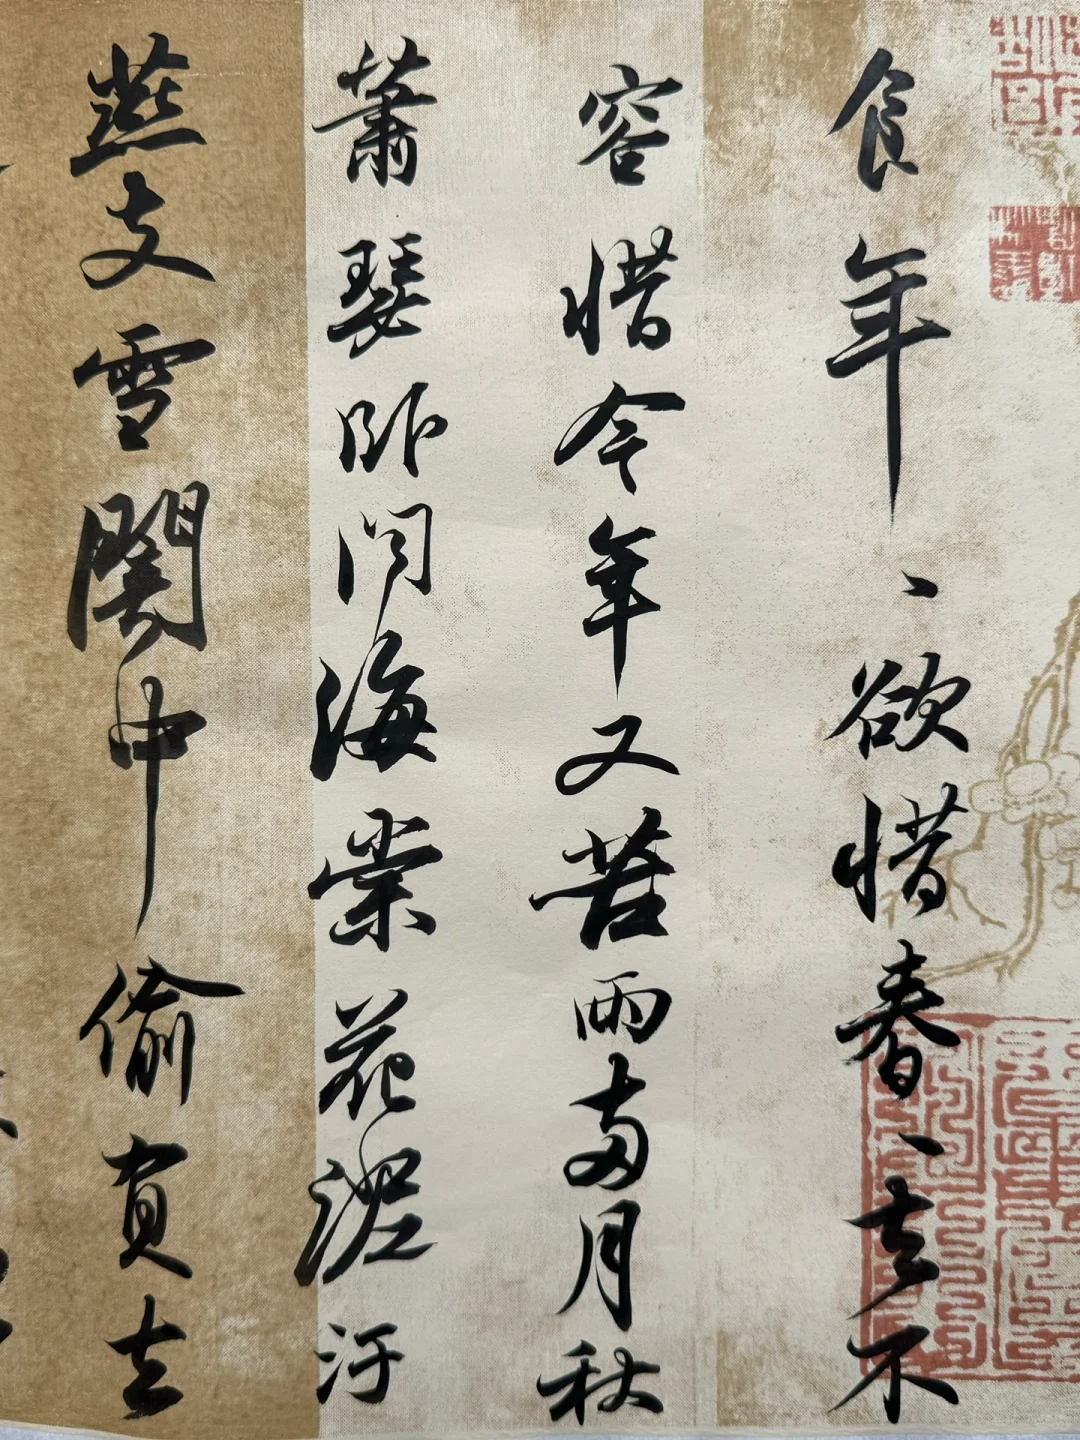 食年、欲惜春、去不
容惜今年又苦雨两月秋
萧瑟卧闻海棠花泥汙
燕支雪闇中偷負去